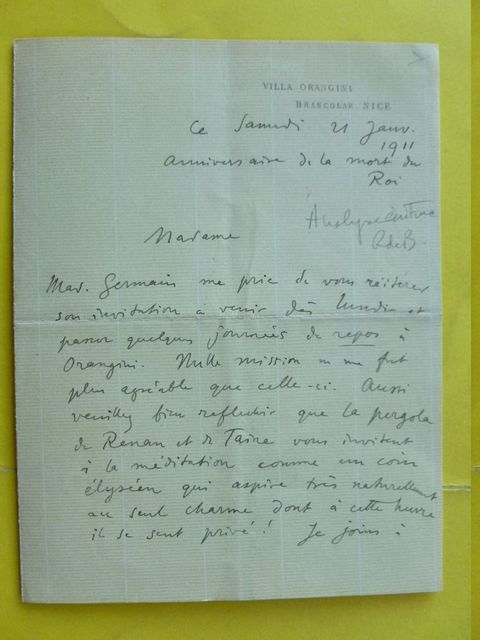 VILLA ORANGINI
BRANCOLAR, NICE
Ce Samedi 21 Janv.
1911
anniversaire de la mort du
Roi
Analyse écriture
R de B
Madame
Mad. Germain me prie de vous réitérer
son invitation à venir dès lundi et
passer quelques journées de repos à
Orangini. Nulle mission ne me fut
plus agréable que celle-ci. Aussi
veuillez bien reflechir que la pergola
de Renan et de Taine vous invitent
à la méditation comme un coin
élyséen qui aspire très naturellement
au seul charme dont à cette heure
il se sent privé! Je joins à